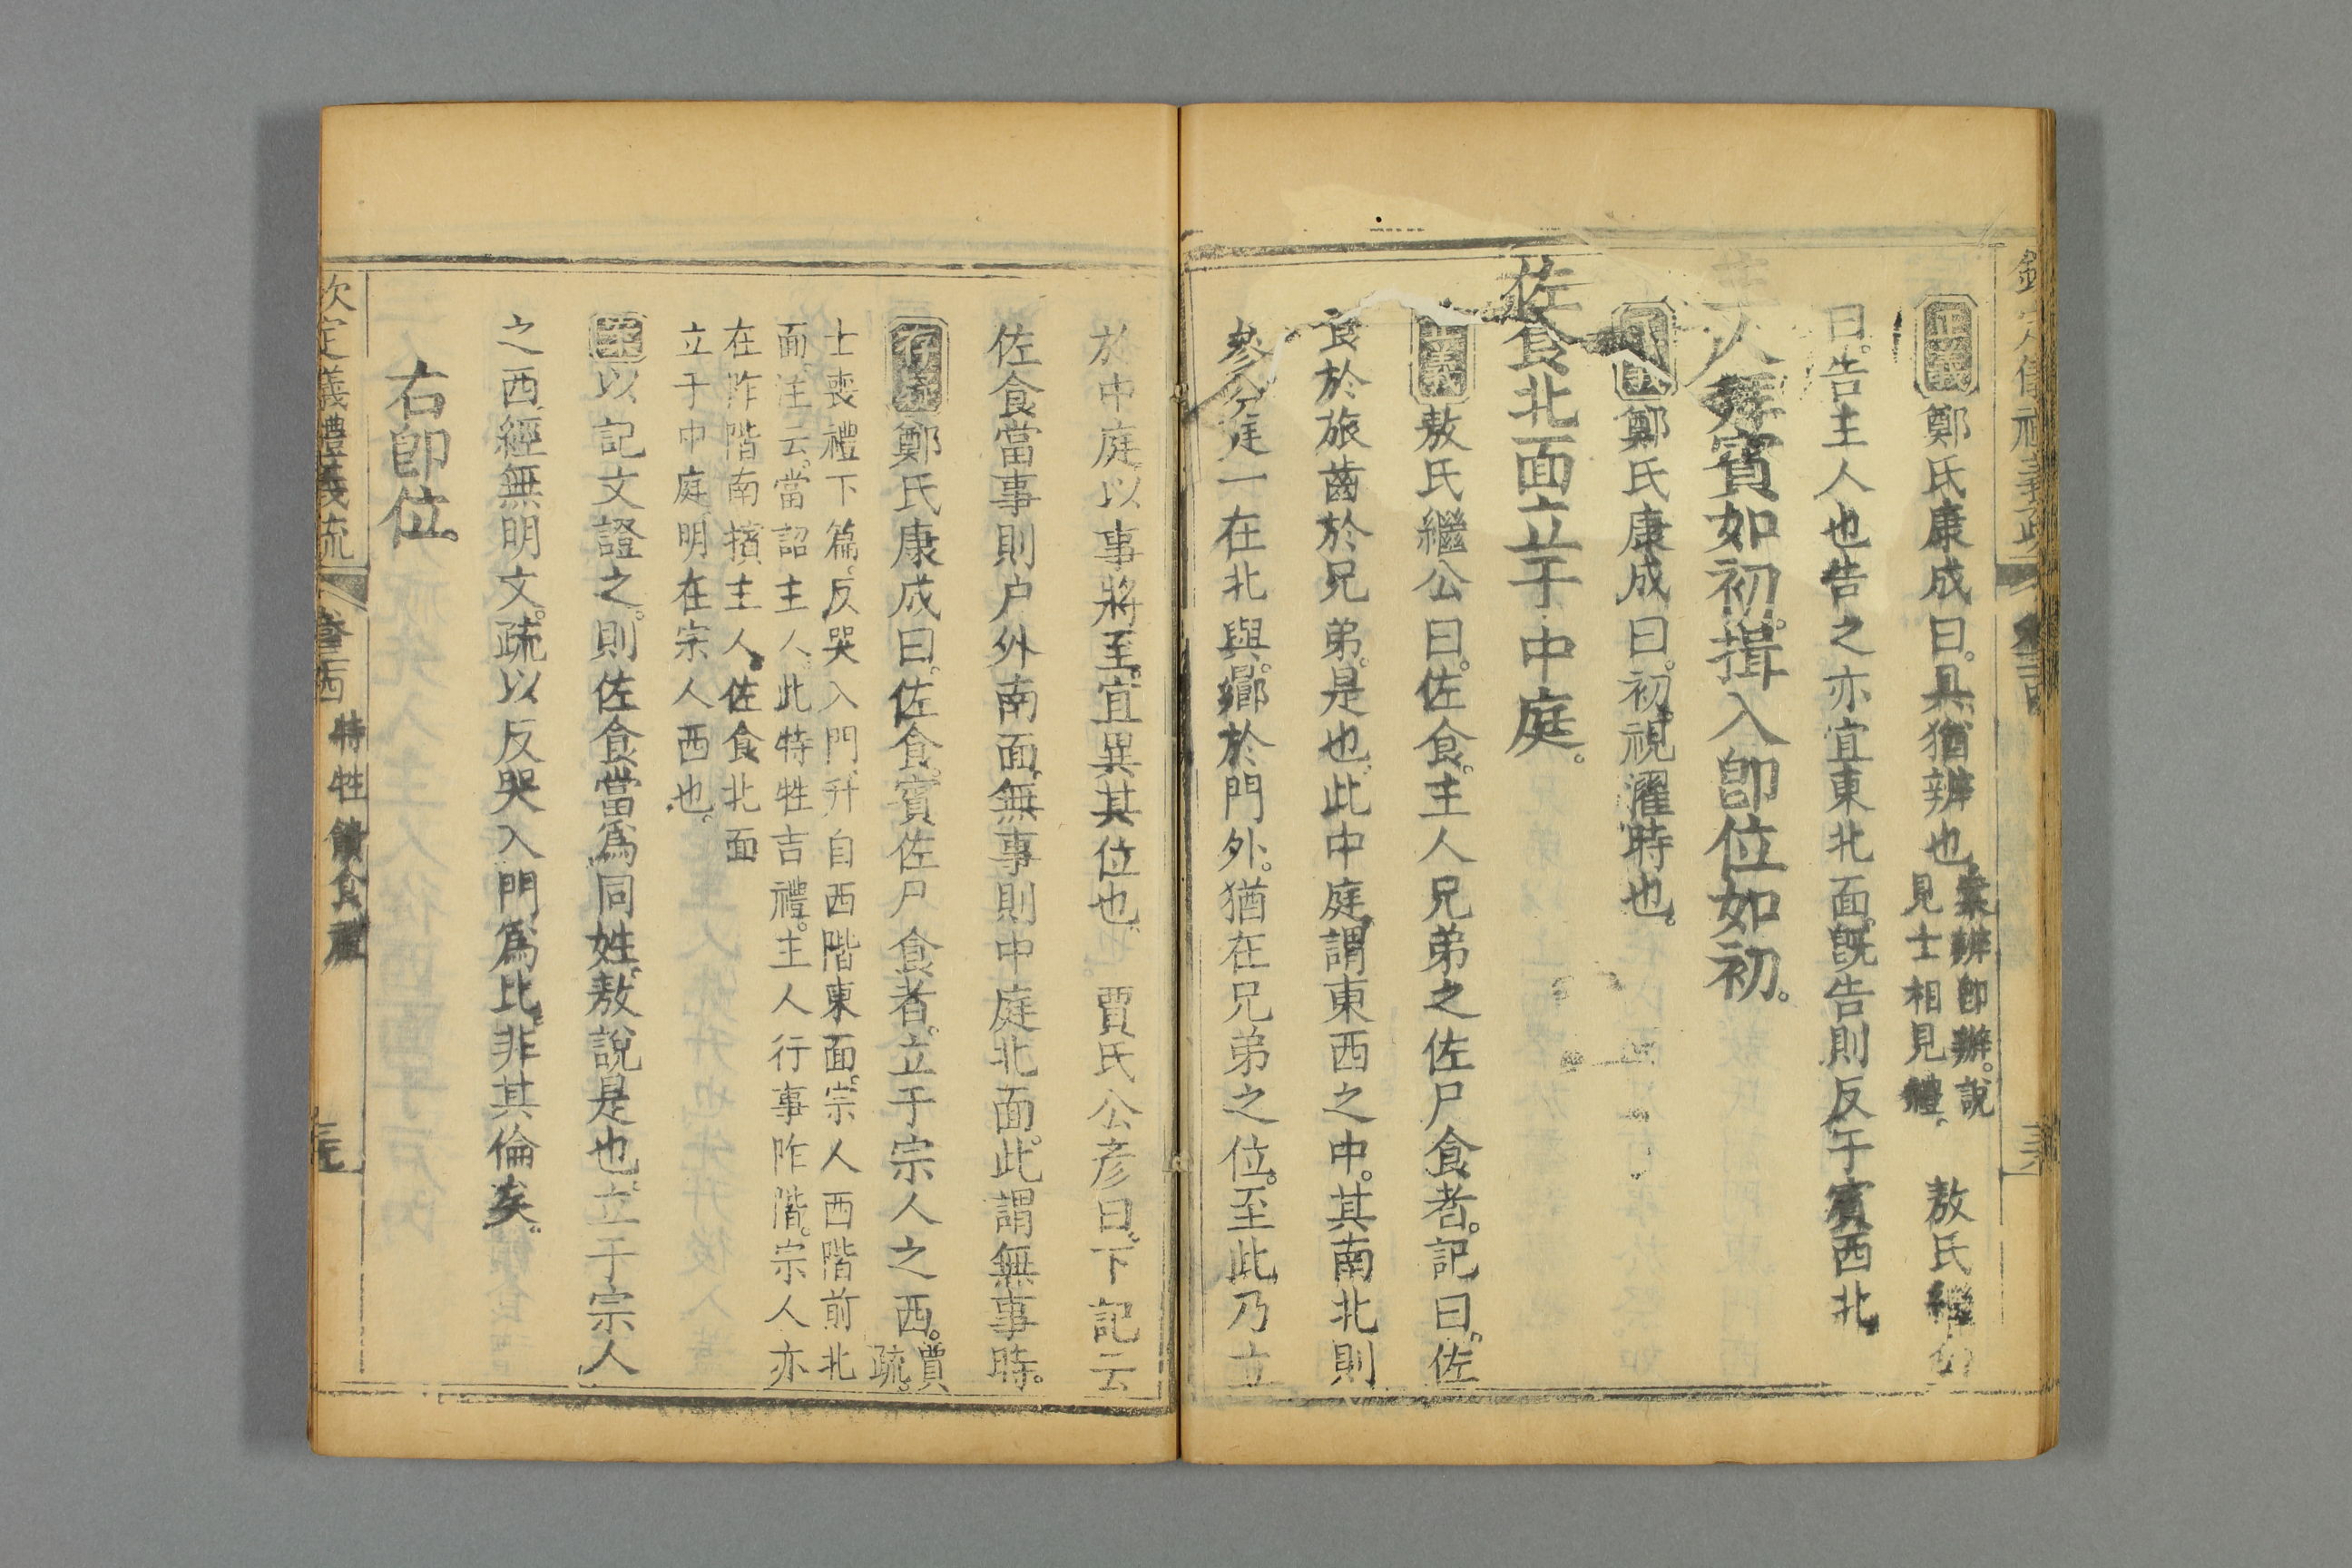 正義鄭氏康成曰。具猶辨也案辨卽辦。說見士相見禮。敖氏繼公
曰。告主人也告之亦宜東北面。旣告則反于賓西北
人拜賓如初。揖入卽位如初。
鄭氏康成曰。初視濯時也。
佐食北面立于中庭。
正義敖氏繼公曰。佐食。主人兄弟之佐尸食者。記曰。佐
食於旅齒於兄弟。是也。此中庭。謂東西之中。其南北則
參分庭一在北與。鄉於門外。猶在兄弟之位。至此乃立
於中庭。以事將至。宜異其位也。賈氏公彦曰。下記云
佐食當事則户外南面。無事則中庭北面。此謂無事時。
存疑鄭氏康成曰。佐食。賓佐尸食者。立于宗人之西。賈疏。
士喪禮下篇。反哭入門。升自西階東面。宗人西階前北
面。注云。當詔主人。此特牲吉禮。主人行事阼階。宗人亦
在阼階南擯主人。佐食北面
立于中庭。明在宗人西也。
以記文證之。則佐食當爲同姓。敖說是也。立于宗人
之西。經無明文。疏以反哭入門爲比。非其倫矣。
右卽位
欽定儀禮義疏
特牲饋食禮